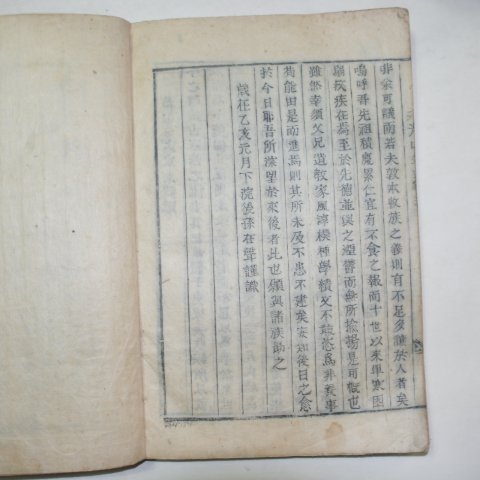 非余可議而若夫敦本收族之義則有不足多讓於人者矣
嗚呼吾先祖積慶累仁宜有不食之報而十世以來單寒困
疾在爲至於先德並與之湮鬱而無所揄揚見可慨也
雖然幸須父兄道教家風淳樸種學績文不敢恣爲非義事
苟能由是而進焉則其所未及不患不建矣安知後日之愈
於今日耶吾所深望於來後者此也願與諸族勖之
歲在乙亥元月下浣後孫在聲謹識